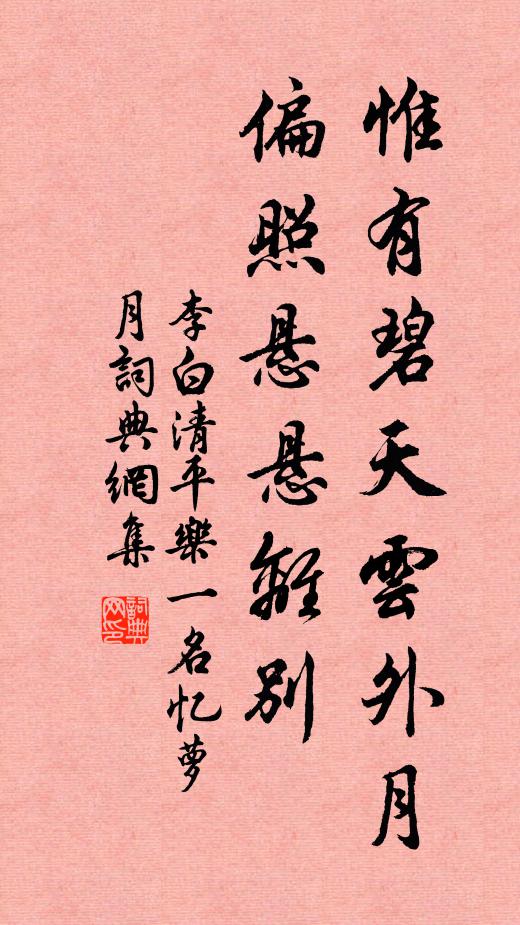 惟有碧天雲外月
偏照悬悬離別
李白清平樂一名忆萝
月詞典網集
詞典网印